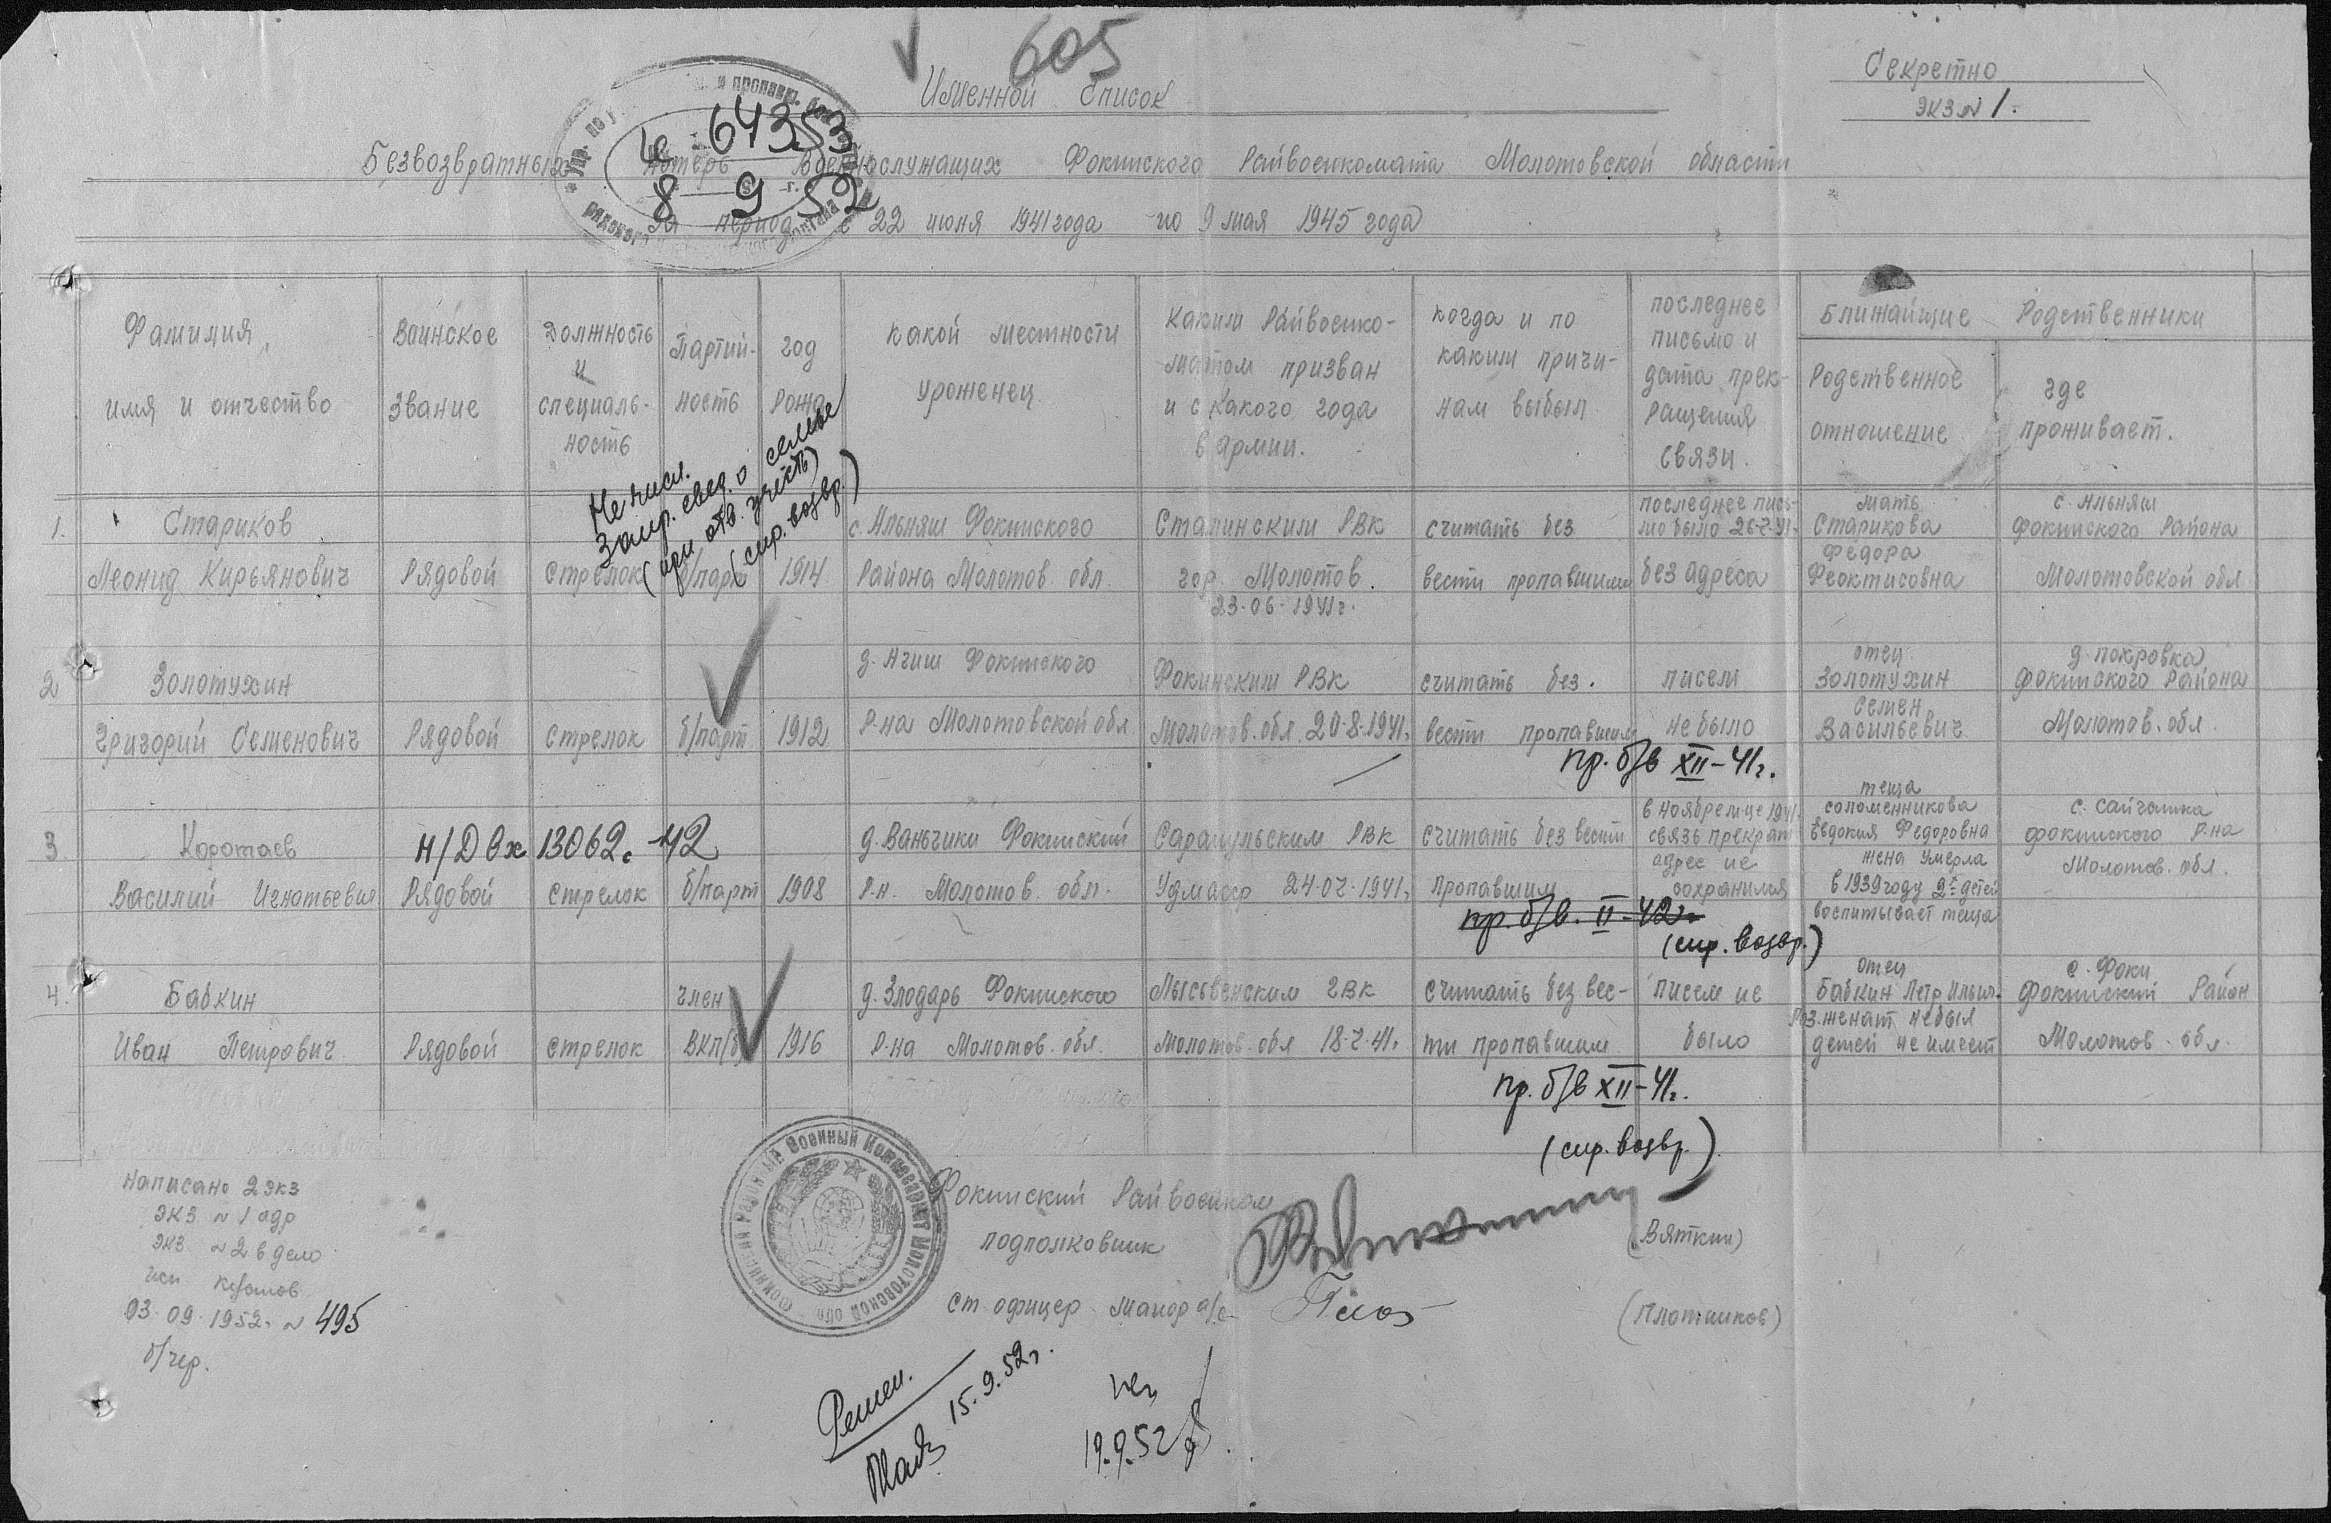 605
Секретно
экз № 1.
Именной Список
Безвозвратных потерь военнослужащих Фокинского Райвоенкомата Молотовской области
64353
8 9 52
за период с 22 июня 1941 года по 9 мая 1945 года
Фамилия, имя и отчество
Воинское Звание
Должность и специаль-ность
Партий-ность
год Рожд
какой местности уроженец
Каким Райвоенко-матом призван и с какого года в армии.
когда и по каким причи-нам выбыл
последнее письмо и дата прек-ращения связи.
Ближайщие Родственники
Родственное отношение
где проживает.
Не числ.
Запр. свед. о семье
(при отв. учесть)
(спр. возвр.)
1. Стариков Леонид Кирьянович
Рядовой
стрелок
б/парт
1914
с. Альняш Фокинского Района Молотов. обл
Сталинским РВК гор. Молотов. 23-06-1941г.
считать без вести пропавшим
последнее пись-мо было 26-7-41. без адреса
мать Старикова Федора Феоктисовна
с. Альняш Фокинского Района Молотовской обл
2 Золотухин Григорий Семенович
Рядовой
стрелок
б/парт
1912
д. Агиш Фокинского Р-на Молотовской обл
Фокинским РВК Молотов. обл 20-8-1941.
считать без. вести пропавшим
писем не было
отец Золотухин Семен Васильевич
д. покровка Фокинского Района Молотов. обл.
пр. б/в XII-41г.
3. Коротаев Василий Игнатьевич
Н/Д Вх 13062с-42
Рядовой
стрелок
б/парт
1908
д. Ваньчики Фокинский Р-н. Молотов. обл.
Сарапульским РВК Удмасср 24-07-1941г
считать без вести пропавшим
в ноябре м-це 1941 связь прекрат адрес не сохранился
теща соломенникова Евдокия Федоровна жена умерла в 1939 году 2-х детей воспитывает теща
с. сайгатка фокинского Р-на Молотов. обл.
пр. б/в. II-42г
(спр. возвр.)
4. Бабкин Иван Петрович
Рядовой
стрелок
член ВКП(б)
1916
д. Злодарь Фокинского Р-на Молотов. обл.
Лысьвенским ГВК Молотов. обл 18-7-41.
считать без вес-ти пропавшим
писем не было
отец Бабкин Петр Ильич. женат небыл детей не имеет
с. Фоки Фокинский Район Молотов. обл.
пр. б/в XII-41г.
(спр. возвр.)
написано 2 экз
экз № 1 адр
экз № 2 в дело
исп
03.09.1952г № 495
б/чер.
Фокинский Райвоенком
подполковник
(Вяткин)
ст. офицер майор а/с
(Плотников)
15.9.52г.
19.9.52